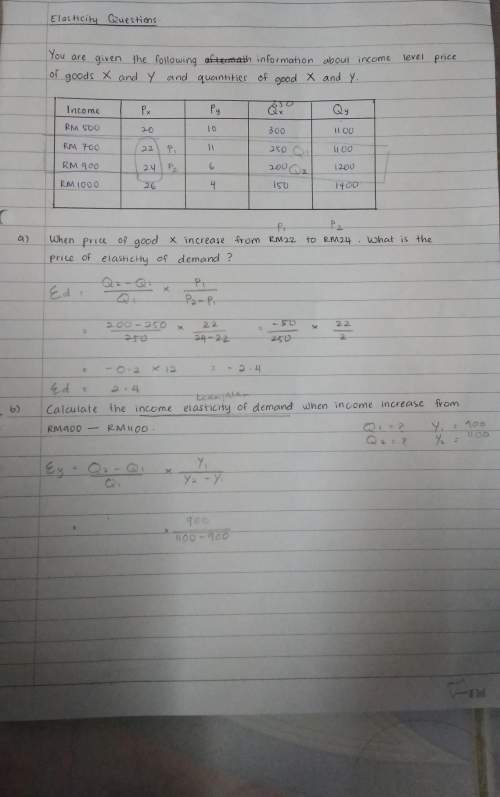 Elasticity Questions.
You are given the following aftermath information about income level price
of goods X and Y and quantities of good X and Y.
Income Px Py Qx Qy
RM 500 20 10 300 1100
RM 700 22 P1 11 250 Q1 1100
RM 900 24 P2 6 200 Q2 1200
RM 1000 26 4 150 1400
P1 P2
a) When price of good X increase from RM22 to RM24. What is the
price of elasticity of demand?
Ed = Q2 - Q1 / Q1 × P1 / P2 - P1
= 200 - 250 / 250 × 22 / 24 - 22 = -50 / 250 × 22 / 2
= -0.2 × 12 = -2.4
Ed = 2.4
b) Calculate the income elasticity of demand when income increase from
RM900 — RM1100.
Q1 = ? Y1 = 900
Q2 = ? Y2 = 1100
Ey = Q2 - Q1 / Q1 × Y1 / Y2 - Y1
× 900 / 1100 - 900